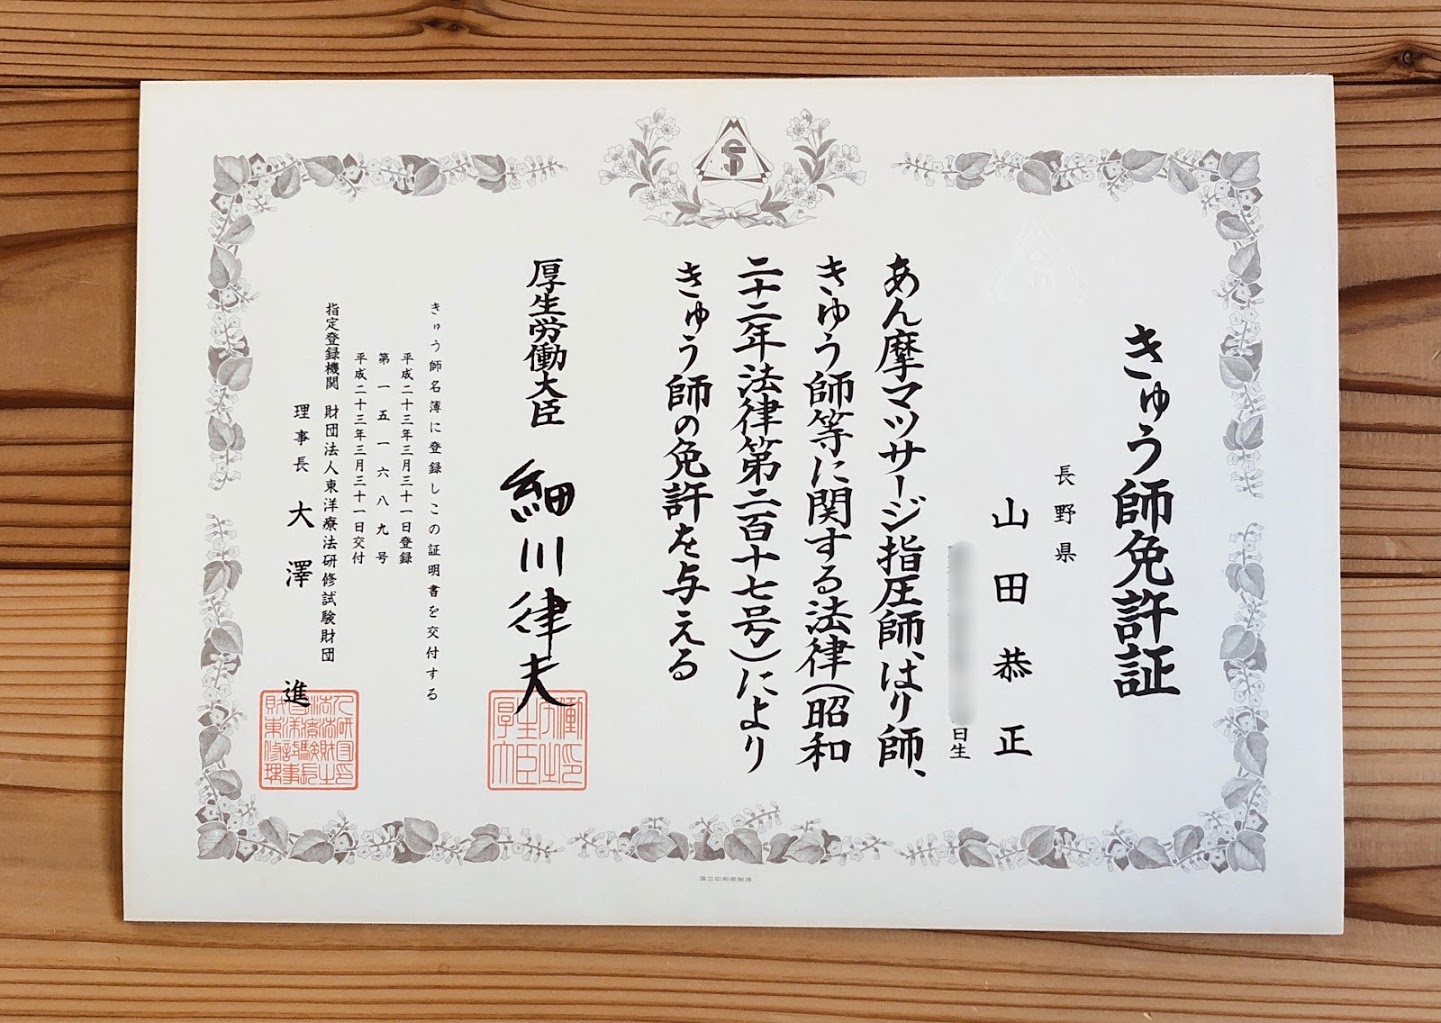 きゅう師免許証
長野県
山田恭正
日生
あん摩マツサージ指圧師、はり師、
きゆう師等に関する法律(昭和
二十二年法律第二百十七号)により
きゅう師の免許を与える
厚生労働大臣 細川律夫
きゅう師名簿に登録しこの証明書を交付する
平成二十三年三月三十一日登録
第一五一六八九号
平成二十三年三月三十一日交付
指定登録機関 財団法人東洋療法研修試験財団
理事長 大澤 進